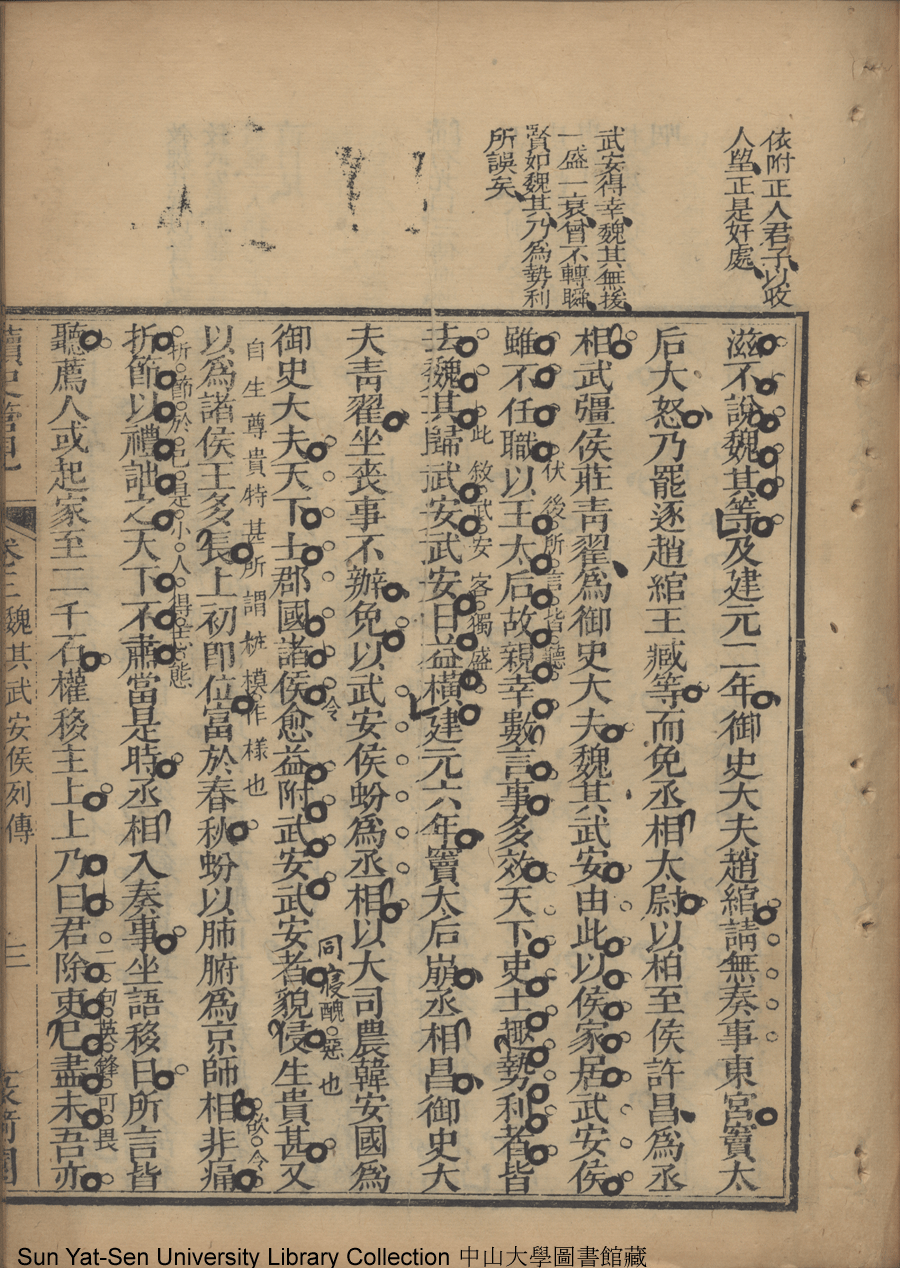 依附正人君子以收
人望正是奸處
武安得幸魏其無援
一盛一衰曾不轉瞬
賢如魏其乃為勢利
所誤矣
滋不說魏其等及建元二年御史大夫趙綰請無奏事東宮竇太
后大怒乃罷逐趙綰王臧等而免丞相太尉以柏至侯許昌為丞
相武彊侯莊青翟為御史大夫魏其武安由此以侯家居武安侯
雖不任職以王太后故親幸數言事多效天下吏士趨勢利者皆
伏後所言皆聽
去魏其歸武安武安日益橫建元六年竇太后崩丞相昌御史大
此敘武安客獨盛
夫青翟坐喪事不辦免以武安侯蚡為丞相以大司農韓安國為
御史大夫天下士郡國諸侯愈益附武安武安者貌侵生貴甚又
令
同寢醜惡也
自生尊貴特甚所謂桩模作樣也
以為諸侯王多長上初即位富於春秋蚡以肺腑為京師相非痛
欲令
折節以禮詘之天下不肅當是時丞相入奏事坐語移日所言皆
折節於己是小人得志態
聽薦人或起家至二千石權移主上上乃曰君除吏已盡未吾亦
二句英鋒可畏
讀史管見
卷三 魏其武安侯列傳
三